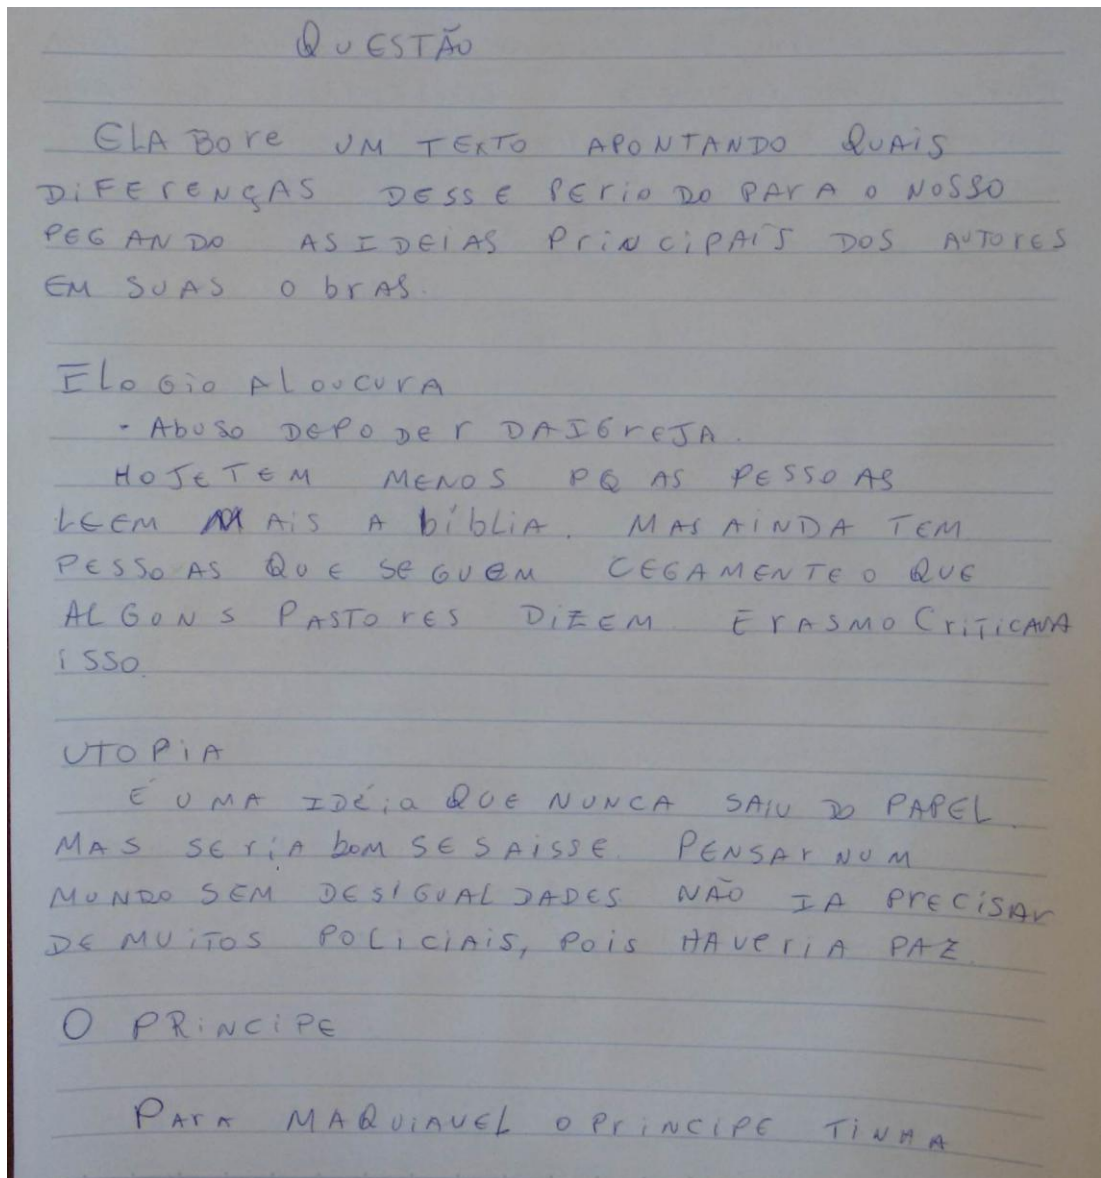 QUESTÃO
ELABore UM TEXTO APONTANDO QUAiS
DiFErENÇAS DESSE PErioDO PArA O NOSSO
PEGANDO AS IDEIAS PriNCiPAIS DOS AUTOrES
EM SUAS ObrAS.
ELOGiO A LOUCURA
- AbUSO DE PODEr DA IGrEJA.
HOJE TEM MENOS PQ AS PESSOAS
LEEM MAIS A bíbLIA. MAS AINDA TEM
PESSOAS QUE SEGUEM CEGAMENTE O QUE
ALGUNS PASTOrES DIZEM. ErASMO CriTICAVA
iSSO.
UTOPiA
É UMA IDÉia QUE NUNCA SAIU DO PAPEL.
MAS SEriA bOM SE SAISSE. PENSAr NUM
MUNDO SEM DESIGUALDADES NÃO IA PrECiSAr
DE MUiTOS POLICIAIS, POiS HAVEriA PAZ.
O PRiNCiPE
PArA MAQUIAVEL O PriNCIPE TiNHA